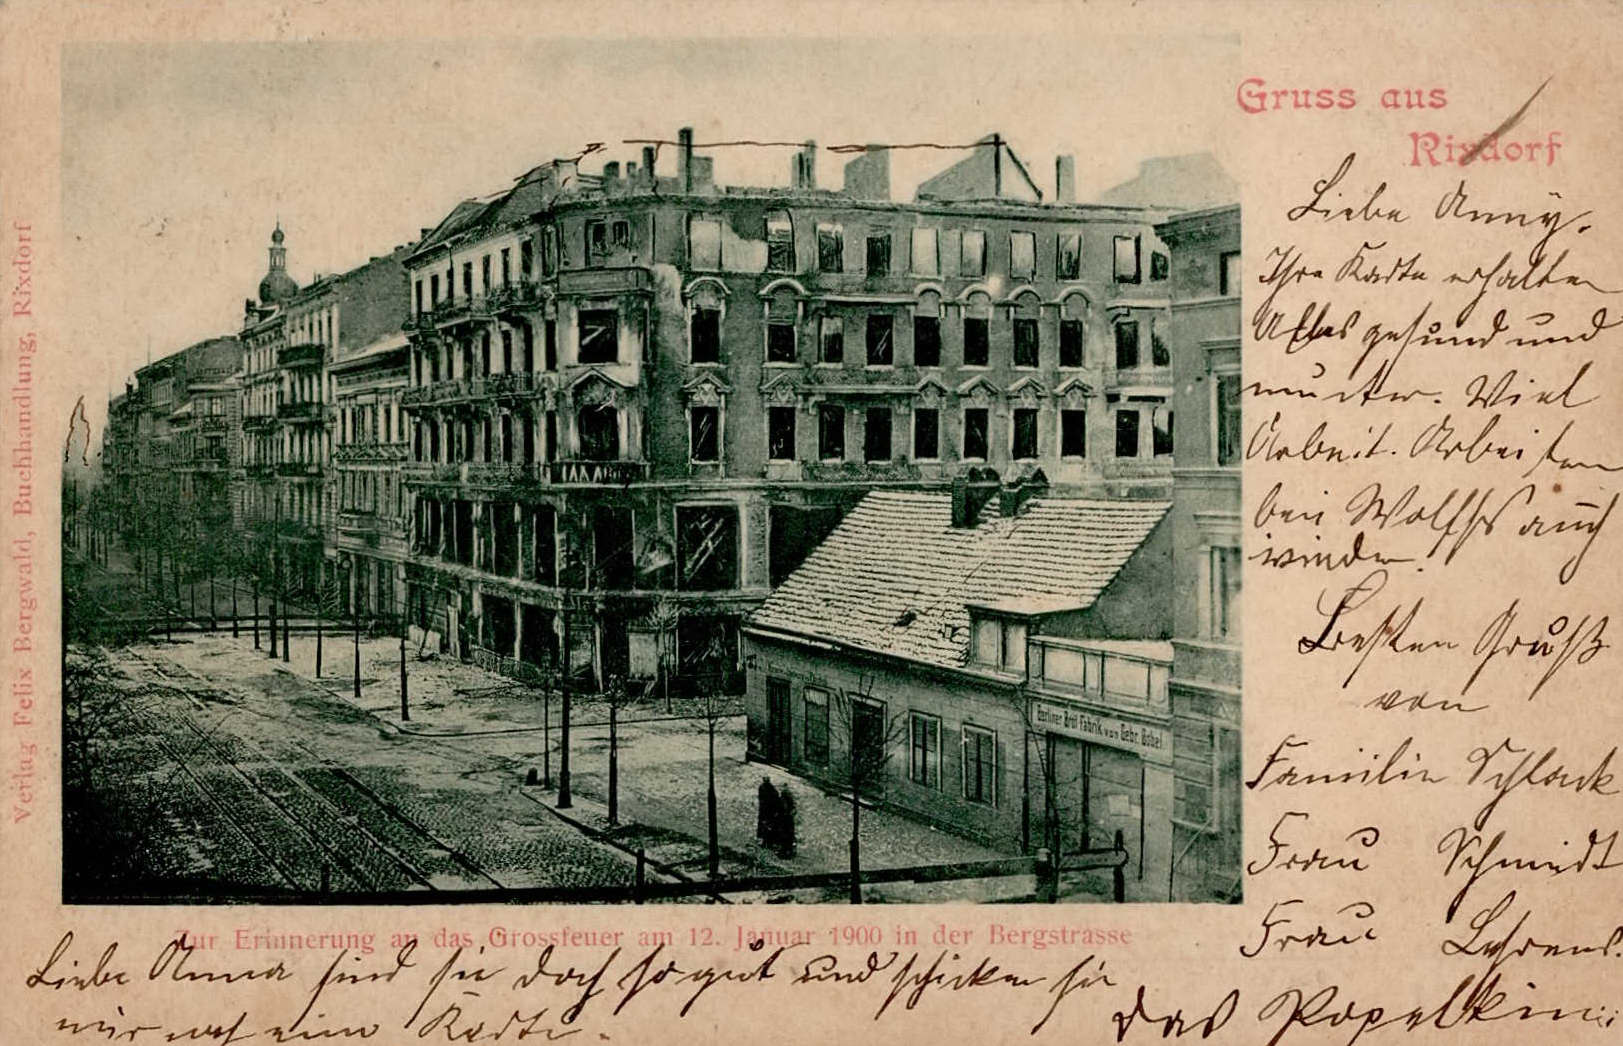 Gruss aus
Rixdorf
Liebe Anny.
Ihre Karte erhalten
Alles gesund und
munter. Viel
Arbeit. Arbeiten
bei Wolffs auch
wieder.
Besten Gruß
von
Familie Schlack
Frau Schmidt
Frau Behrens.
das
Verlag Felix Bergwald, Buchhandlung, Rixdorf
Berliner Brot Fabrik von Gebr. Göbel
Zur Erinnerung an das Grossfeuer am 12. Januar 1900 in der Bergstrasse
Liebe Anna sind sie doch so gut und schicken sie
mir noch eine Karte.